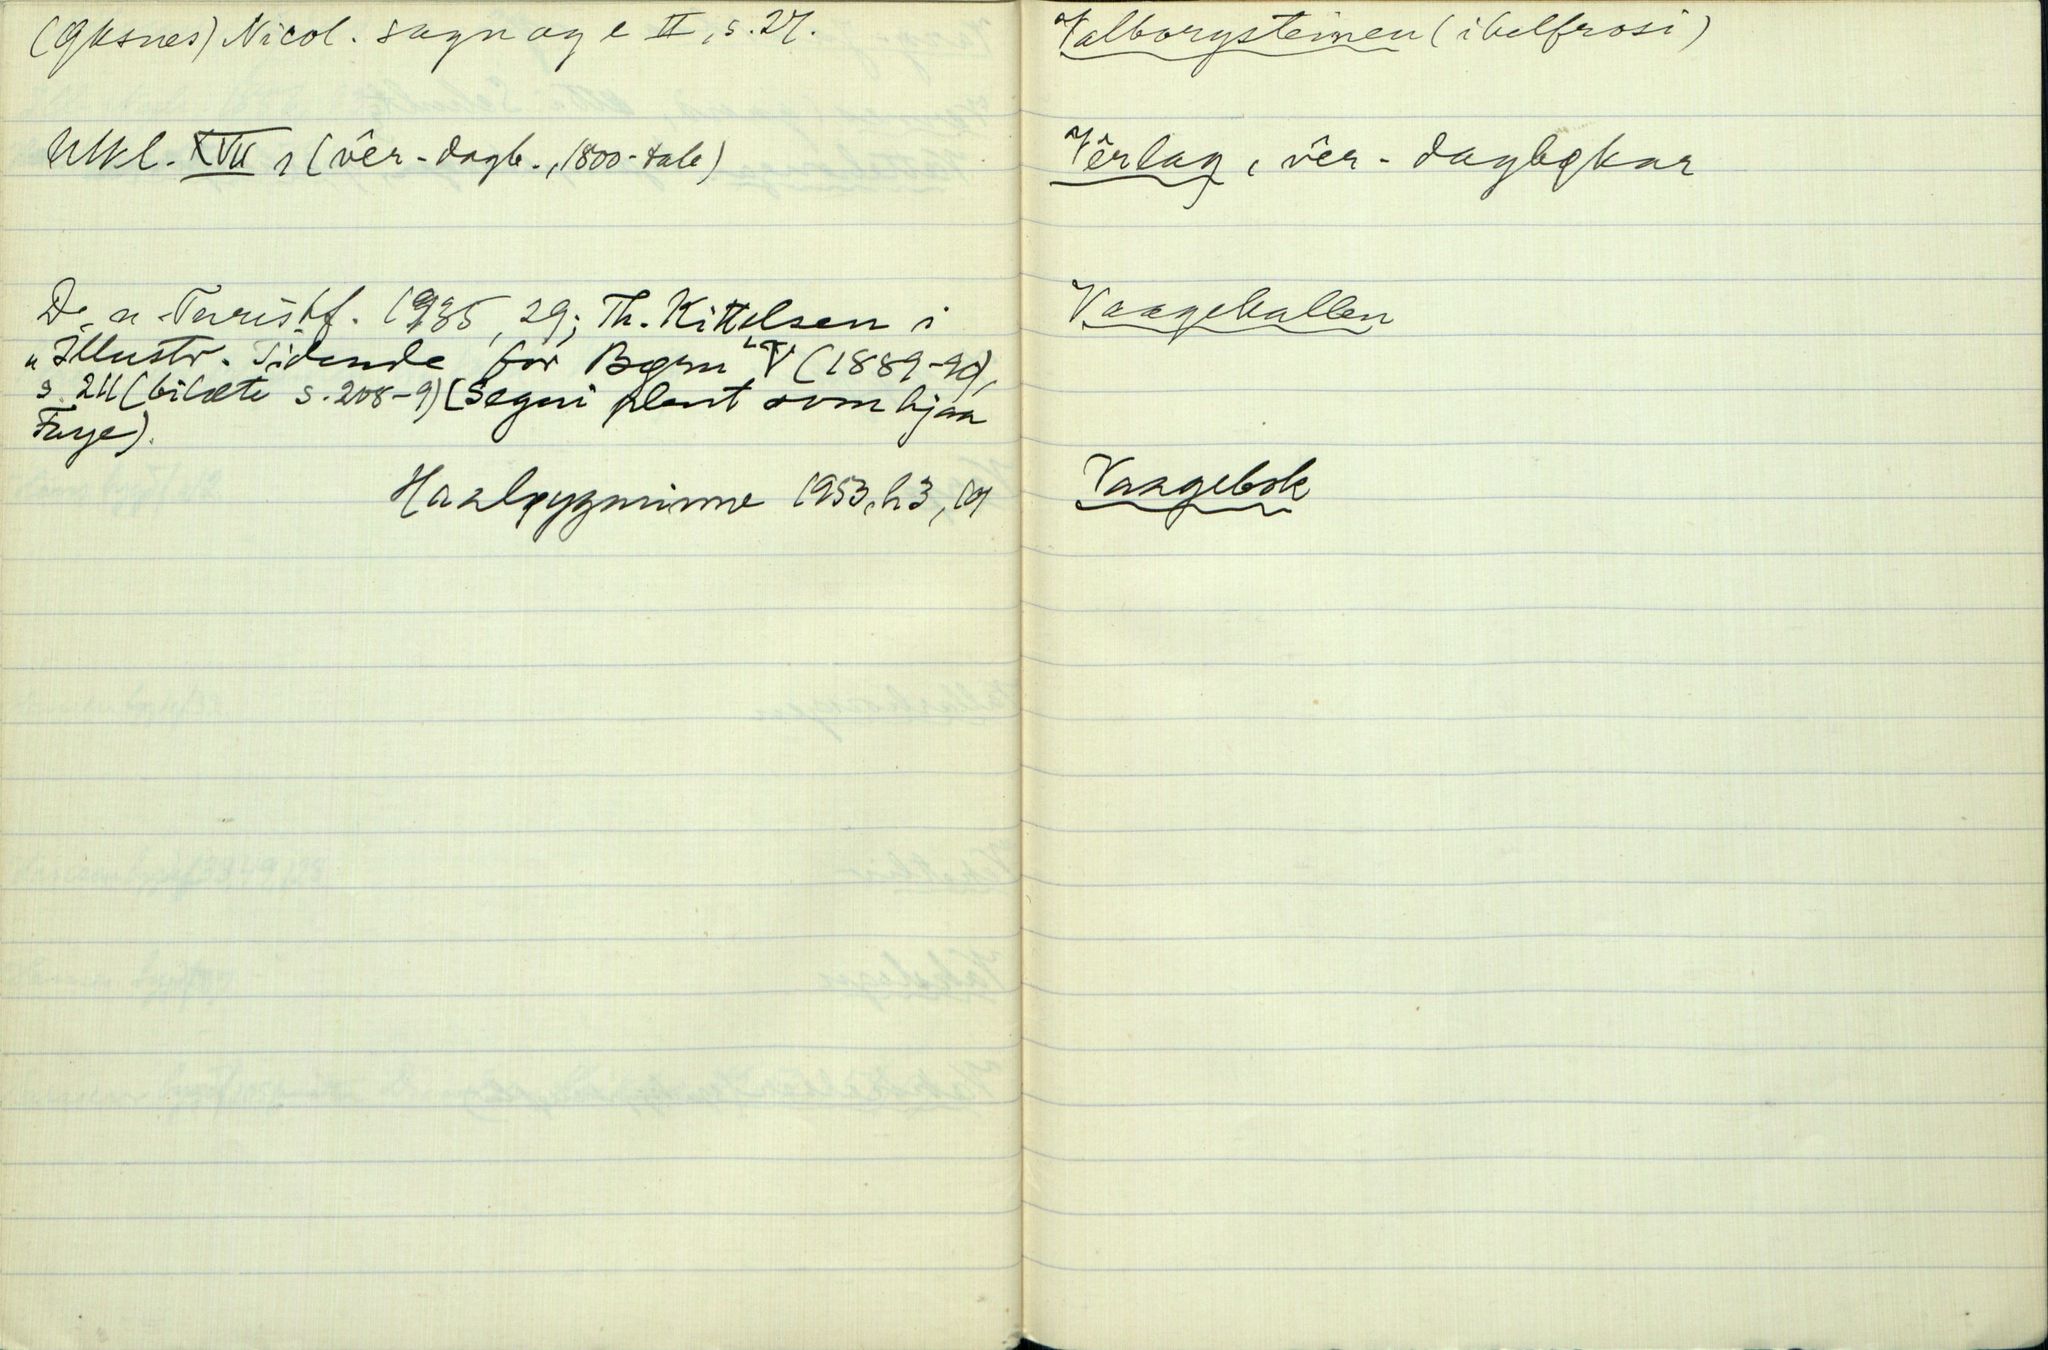 (Øksnes) Nicol. sagn og e II, s. 27.
Utkl. XVII 1 (vêr-dagb., 1800-tale)
D. n. Turistf. 1935, 29; Th. Kittelsen i
„Illustr. Tidende for Børn" V (1889-90),
s. 211 (bilæte s. 208-9) (Segni plent som hjaa
Faye).
Haaløygminne 1953, h 3, 101
Valborgsteinen (i helfrosi)
Vêrlag, vêr-dagbøkar
Vaagekallen
Vaagebok